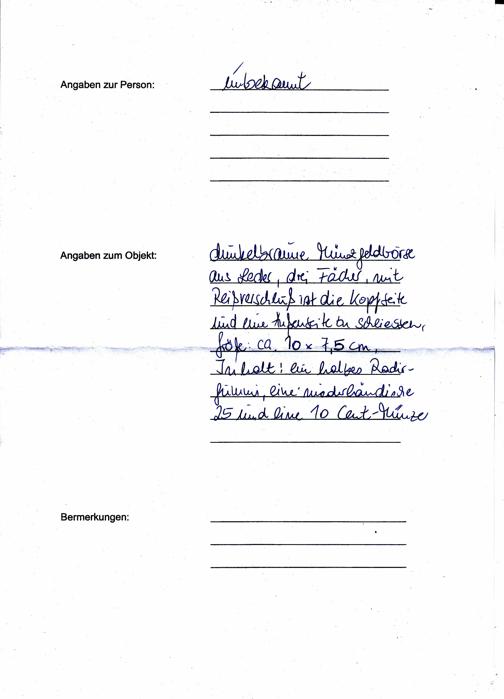 Angaben zur Person:
unbekannt
Angaben zum Objekt:
dunkelbraune Münzgeldbörse
aus Leder, drei Fächer, mit
Reißverschluß ist die Kopfseite
und eine Außenseite zu schliessen,
Größe: ca. 10 x 7,5 cm,
Inhalt: ein halbes Radier-
gummi, eine niederländische
25 und eine 10 Cent-Münze
Bermerkungen: